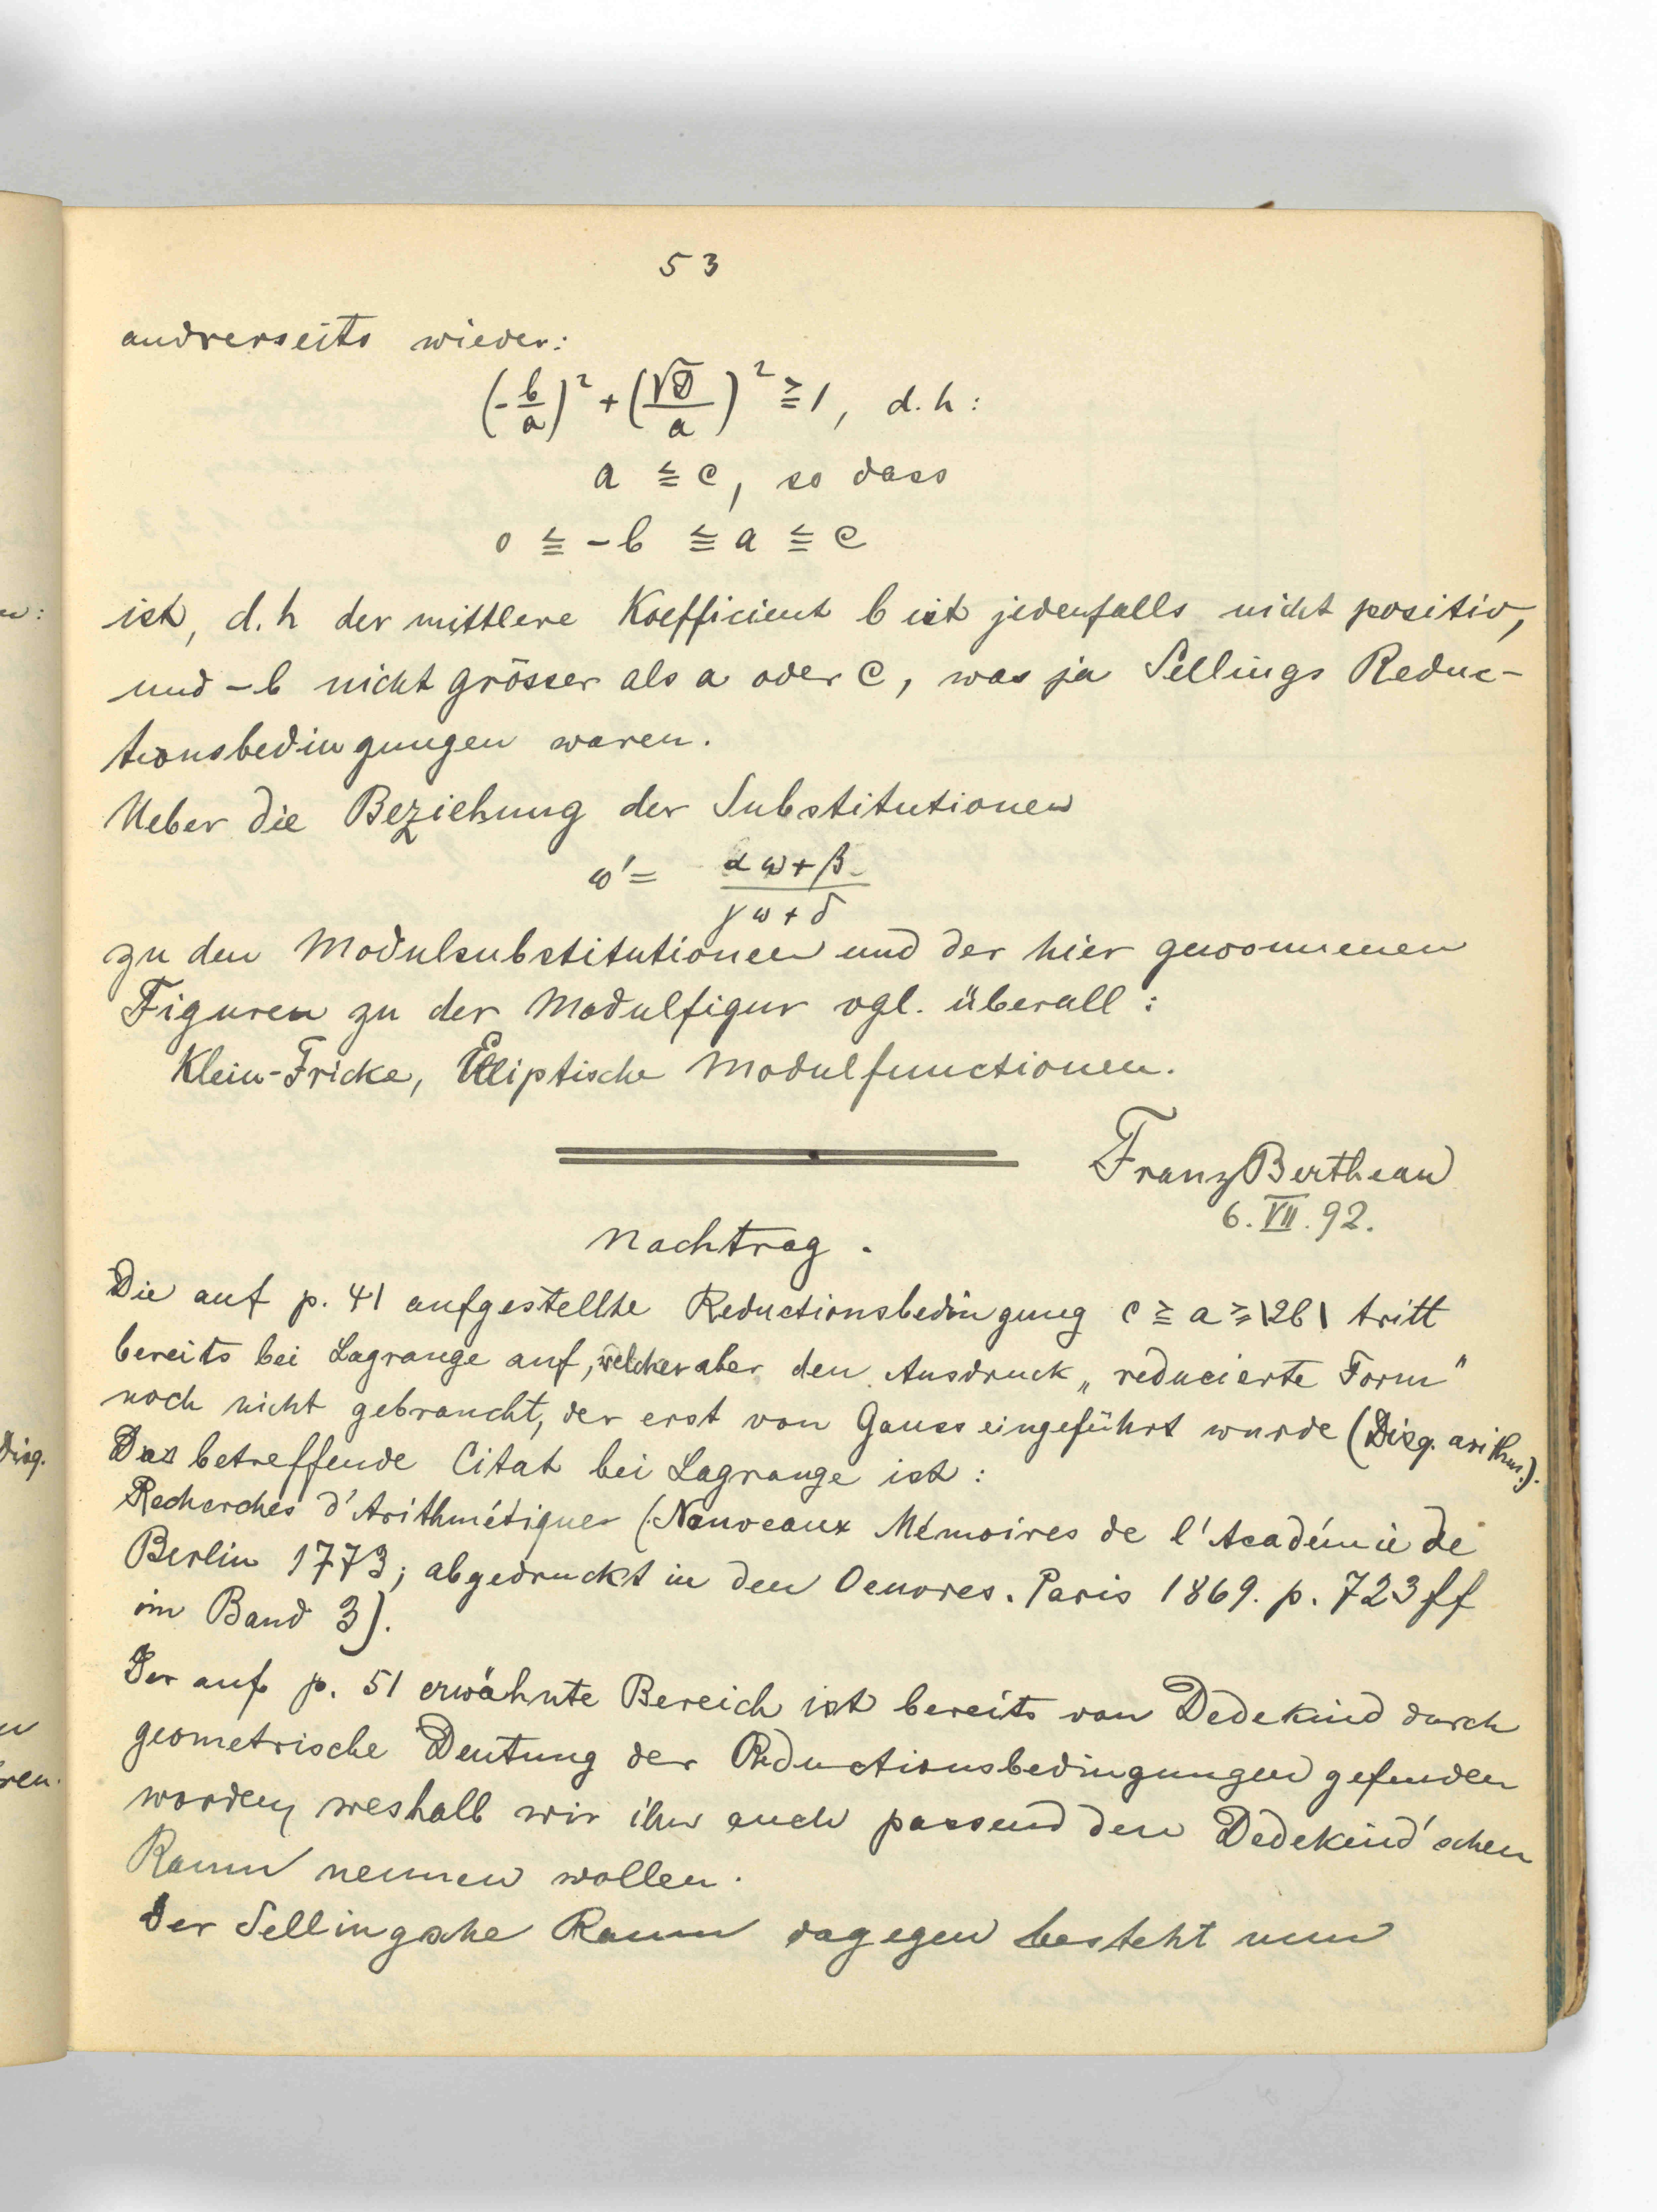 53
andrerseits wieder:
(-b/a)² + (√D/a)² ≧ 1, d.h:
a ≦ c, so dass
0 ≦ -b ≦ a ≦ c
ist, d.h der mittlere Koefficient b ist jedenfalls nicht positiv,
und -b nicht grösser als a oder c, was ja Sellings Reduc-
tionsbedingungen waren.
Ueber die Beziehung der Substitutionen
ω' = (αω+β)/(γω+δ)
zu den Modulsubstitutionen und der hier gewonnenen
Figuren zu der Modulfigur vgl. überall:
Klein-Fricke, Elliptische Modulfunctionen.
Franz Bertheau
6. VII. 92.
Nachtrag.
Die auf p. 41 aufgestellte Reductionsbedingung c ≧ a ≧ |2b| tritt
bereits bei Lagrange auf, welcher aber den Ausdruck „reducierte Form"
noch nicht gebraucht, der erst von Gauss eingeführt wurde (Disq. arithm.).
Das betreffende Citat bei Lagrange ist:
Recherches d'Arithmétiques (Nouveaux Mémoires de l'Académie de
Berlin 1773; abgedruckt in den Oeuvres. Paris 1869. p. 723 ff
im Band 3).
Der auf p. 51 erwähnte Bereich ist bereits von Dedekind durch
geometrische Deutung der Reductionsbedingungen gefunden
worden, weshalb wir ihn auch passend den Dedekind'schen
Raum nennen wollen.
Der Sellingsche Raum dagegen besteht nun
n:
Disq.
ren.